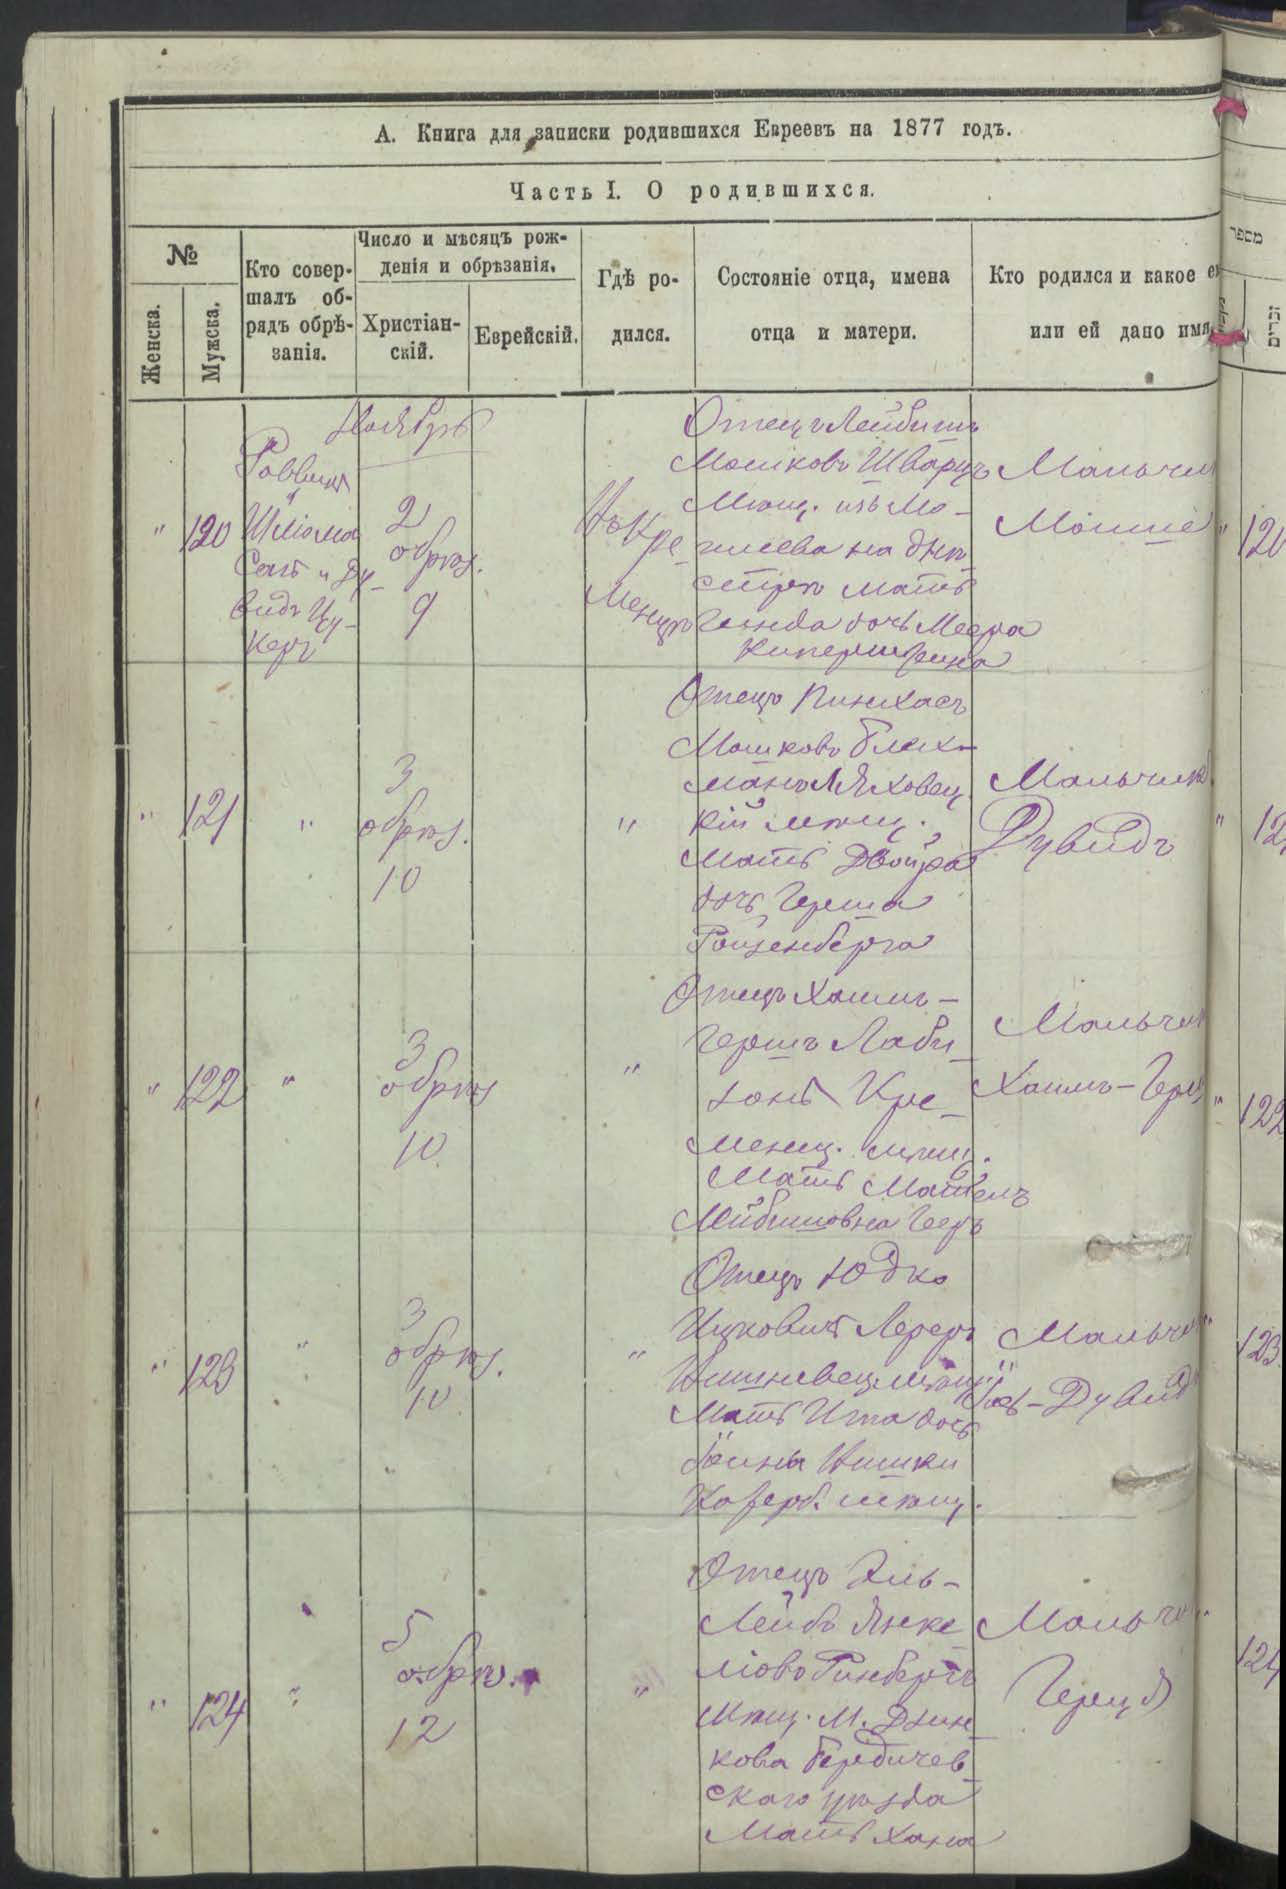 А. Книга для записки родившихся Евреевъ на 1877 годъ.
Часть I. О родившихся.
№
Женска.
Мужска.
Кто совер-
шалъ об-
рядъ обрѣ-
занія.
Число и мѣсяцъ рож-
денія и обрѣзанія.
Христіан-
скій.
Еврейскій.
Гдѣ ро-
дился.
Состояніе отца, имена
отца и матери.
Кто родился и какое е
или ей дано имя
מספר
זכרים
Ноябрь
" 120
Раввинъ
Шліома
Сатъ и Ду-
видъ Цу-
керъ
2
обрѣз.
9
Въ Кре-
менцѣ
Отецъ Лейбишъ
Мошковъ Шварцъ
Мѣщ. изъ Мо-
гилева на Днѣ-
стрѣ Мать
Генда дочь Меера
Куперштейна
Мальчик
Мошше
" 120
" 121
"
3
обрѣз.
10
"
Отецъ Пинхасъ
Мошковъ Блех-
манъ Ляховец
кій мѣщ.
Мать Двойра
дочь Герша
Ройзенберга
Мальчикъ
Дувидъ
" 12
" 122
"
3
обрѣз
10
"
Отецъ Хаимъ-
Гершъ Лаби-
Кре-
менец. мѣщ.
Мать
Лейбишовна Гееръ
Мальчик
Хаимъ-Герш
" 122
" 123
"
3
обрѣз.
10
"
Отецъ Юдко
Ицковичъ Лереръ
Вишневец. мѣщ.
Мать Ита дочь
мѣщ.
Мальчи
Дувидъ
123
" 124
"
5
обрѣз.
12
"
Отецъ Эль-
Лейбъ Янке-
ліовъ Гинбергъ
Мѣщ. М. Дзюн-
кова Бердичев-
скаго уѣзда
Мать Хана
Мальчи
Герцъ
124